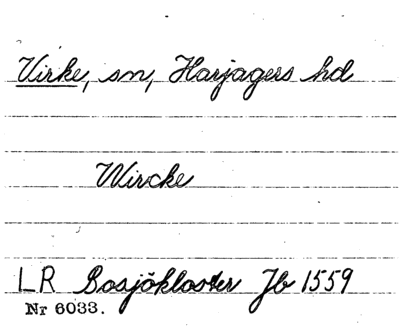 Virke, sn, Harjagers hd
Wircke
LR Bosjökloster Jb 1559
Nr 6033.